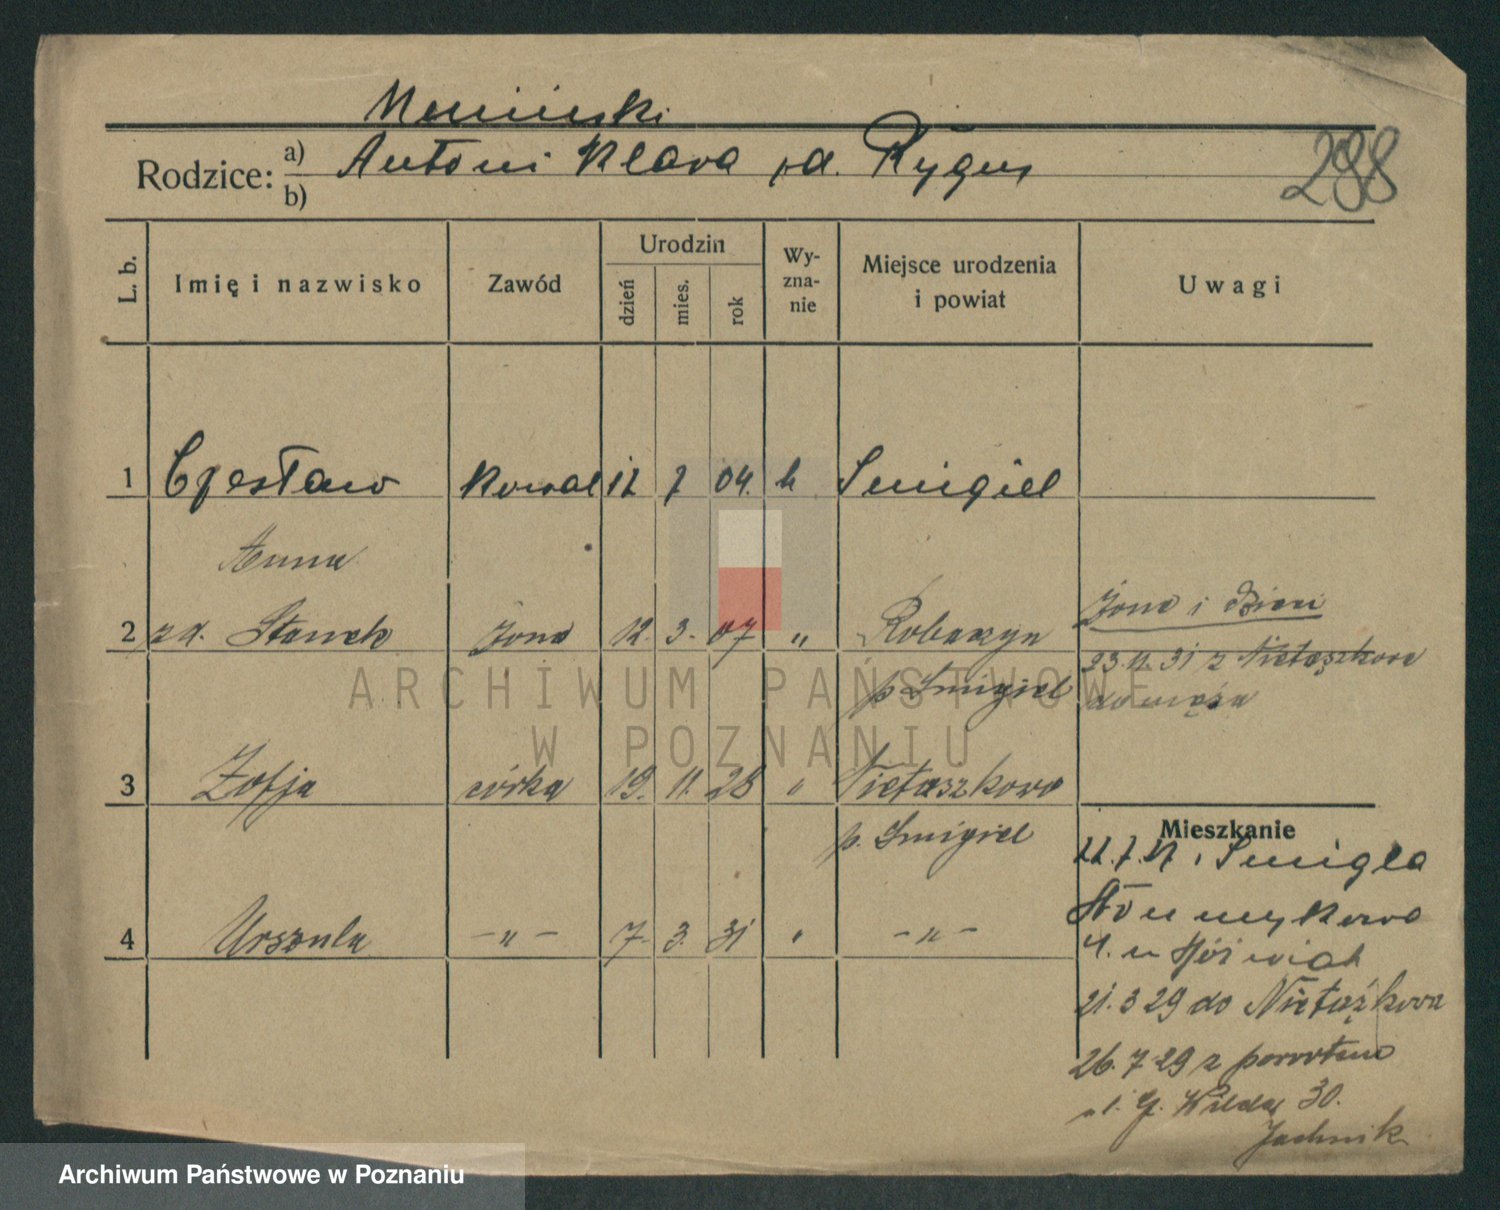 Rodzice: a) Antoni Klara zd. Rygus
b)
288
L. b.
Imię i nazwisko
Zawód
Urodzin
dzień
mies.
rok
Wy-
zna-
nie
Miejsce urodzenia
i powiat
Uwagi
1 Czesław kowal 12 7 04. k Smigiel
Anna
2 zd. Stanek żona 12. 3. 07 " Robaczyn
p Smigiel
Żona i dzieci
23. 11. 31 z Nietąszkowa
do męża
3 Zofja córka 19. 11. 28 " Nietaszkowo
p. Smigiel
4 Urszula -"- 7. 3. 31 " -"-
Mieszkanie
z Smigla
4. u
21. 3 29 do Nietąszkowa
26. 7 29 z powrotem
G. Wilda 30.
Jachnik
ARCHIWUM PAŃSTWOWE
W POZNANIU
Archiwum Państwowe w Poznaniu